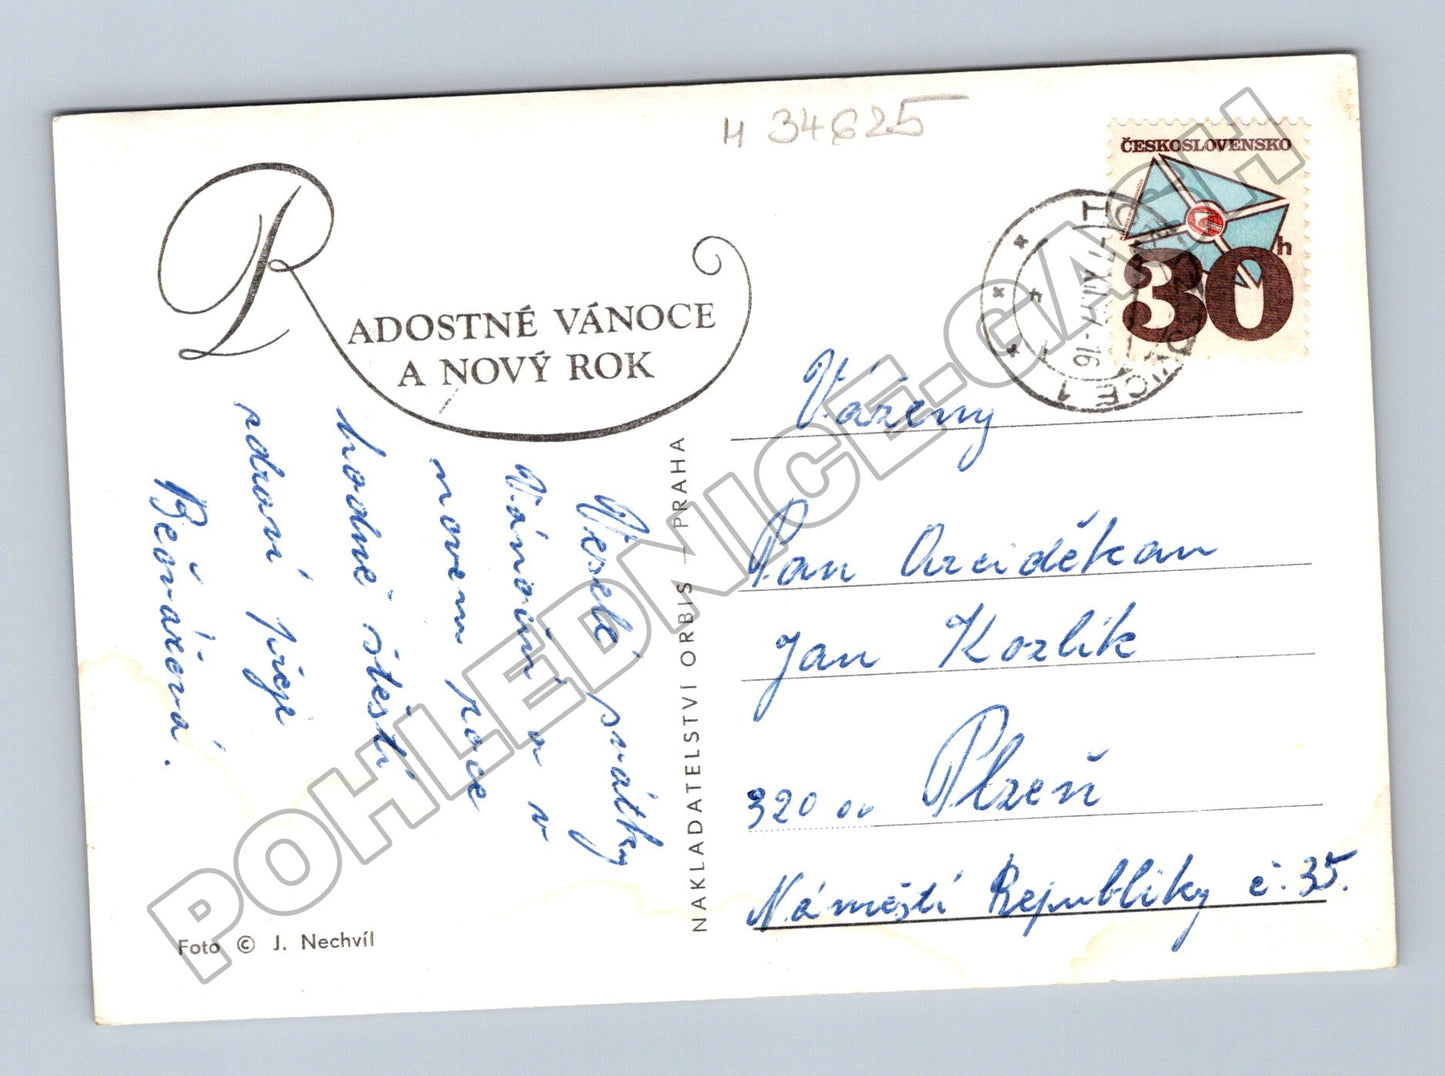 H 34625
ČESKOSLOVENSKO
30 h
RADOSTNÉ VÁNOCE
A NOVÝ ROK
Veselé svátky
Vánoční a v
novém roce
hodně štěstí
zdraví přeje
Bečvářová.
Foto © J. Nechvíl
NAKLADATELSTVÍ ORBIS — PRAHA
Vážený
Pan Arciděkan
Jan Kozlík
320 00 Plzeň
Náměstí Republiky č. 35.
POHLEDNICE-GASH